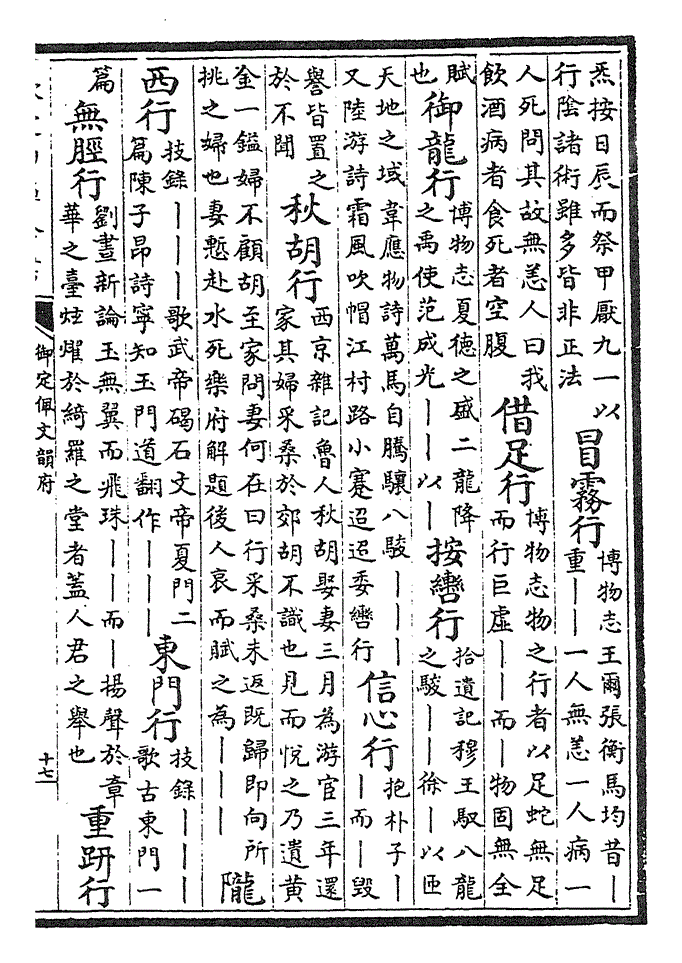 炁按日辰而祭甲厭九一以
行陰諸術雖多皆非正法
冒霧行
博物志王爾張衡馬均昔丨
重丨丨一人無恙一人病一
人死問其故無恙人曰我
飲酒病者食死者空腹
借足行
博物志物之行者以足蛇無足
而行巨虛丨丨而丨物固無全
賦
也
御龍行
博物志夏德之盛二龍降
之禹使范成光丨丨以丨
按轡行
拾遺記穆王馭八龍
之駿丨丨徐丨以匝
天地之域韋應物詩萬馬自騰驤八駿丨丨丨
又陸游詩霜風吹帽江村路小蹇迢迢委轡行
信心行
抱朴子丨
丨而丨毀
譽皆置之
於不聞
秋胡行
西京雜記魯人秋胡娶妻三月為游宦三年還
家其婦采桑於郊胡不識也見而悅之乃遺黃
金一鎰婦不顧胡至家問妻何在曰行采桑未返既歸即向所
挑之婦也妻慙赴水死樂府解題後人哀而賦之為丨丨丨
隴
西行
技錄丨丨丨歌武帝碣石文帝夏門二
篇陳子昂詩寧知玉門道翻作丨丨丨
東門行
技錄丨丨丨
歌古東門一
篇
無脛行
劉晝新論玉無翼而飛珠丨丨而丨揚聲於章
華之臺炫燿於綺羅之堂者蓋人君之舉也
重趼行
御定佩文韻府
十七